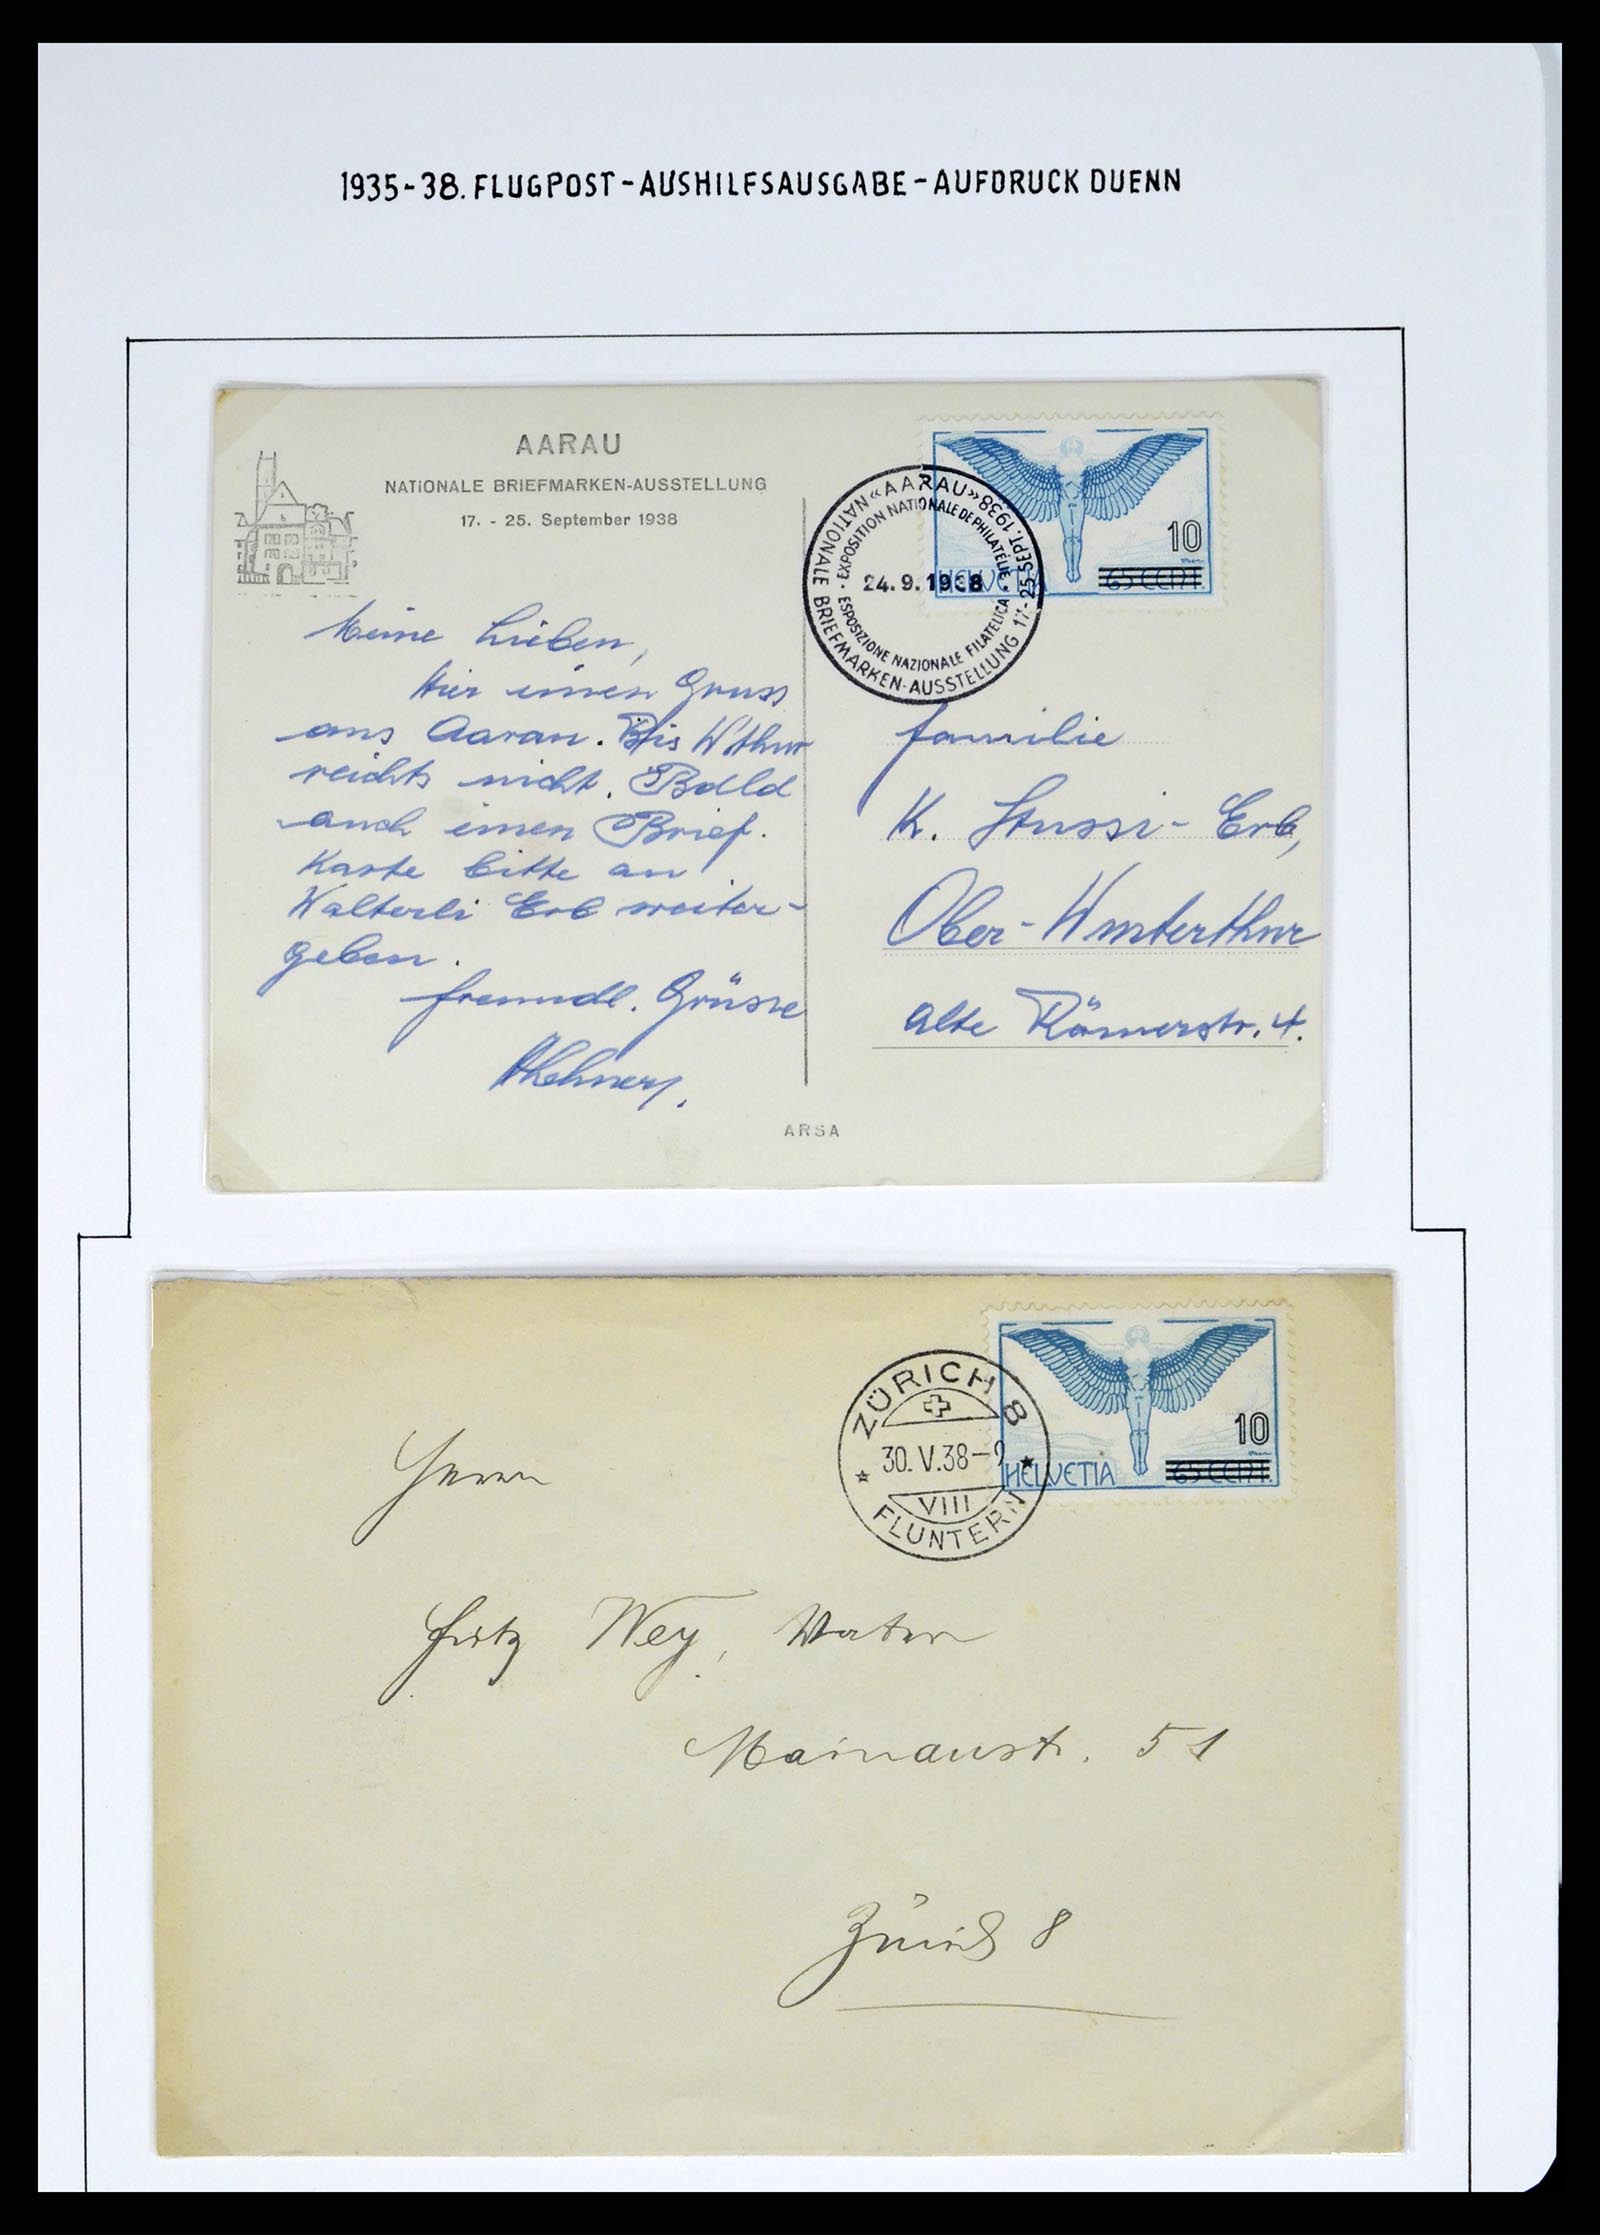 1935-38. FLUGPOST-AUSHILFSAUSGABE-AUFDRUCK DUENN
AARAU
NATIONALE BRIEFMARKEN-AUSSTELLUNG
17. - 25. September 1938
10
65 CENT.
HELVETIA
NATIONALE BRIEFMARKEN-AUSSTELLUNG 17-25. SEPT. 1938
«AARAU»
EXPOSITION NATIONALE DE PHILATÉLIE · ESPOSIZIONE NAZIONALE FILATELICA ·
24.9.1938
Meine Lieben,
Hier einen Gruss
aus Aarau. Bis W'thur
reichts nicht. Bald
auch einen Brief.
Karte bitte an
Walterli Erb weiter-
geben.
freundl. Grüsse
Familie
K. Stussi-Erb,
Ober-Winterthur
Alte Römerstr. 4.
ARSA
10
65 CENT.
HELVETIA
ZÜRICH 8
30.V.38-9
VIII
FLUNTERN
Herrn
Fritz Wey,
Mainaustr. 51
Zürich 8